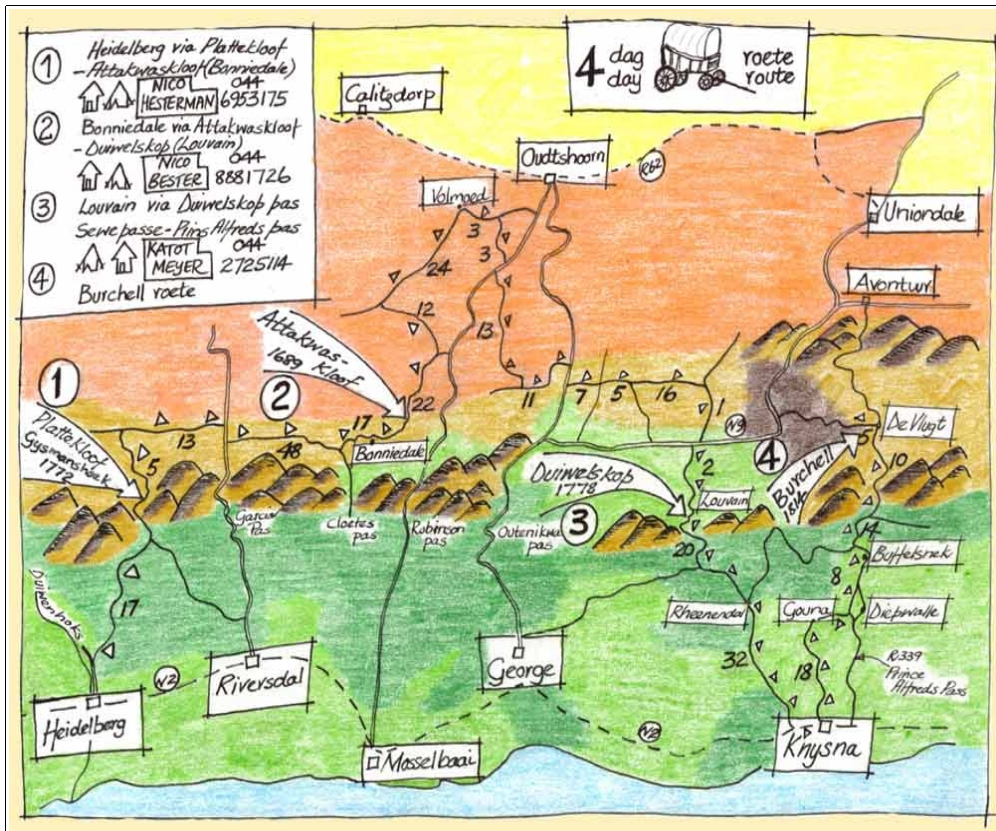 1
Heidelberg via Plattekloof
-Attakwaskloof (Bonniedale)
NICO
HESTERMAN
044
6953175
2
Bonniedale via Attakwaskloof
-Duiwelskop (Louvain)
NICO
BESTER
044
8881726
3
Louvain via Duiwelskop pas
Sewepasse-Prins Alfreds pas
KATOT
MEYER
044
2725114
4
Burchell roete
4 dag roete
day route
Calitzdorp
Oudtshoorn
R62
Volmoed
Uniondale
Avontuur
3
3
24
12
13
Attakwas-
Kloof
1689
1
2
22
11
7
5
16
1
Plattekloof
Gysmanshoek
1772
13
5
48
17
Bonniedale
N9
4
5
De Vlugt
Duiwelskop
1778
2
Louvain
Burchell
1814
10
Garcia
Pas
Cloetes
pas
Robinson
pas
Outenikwa
pas
3
20
14
Buffelsnek
Duiwenhoks
17
8
Rheenendal
Gouna
Diepwalle
Riversdal
George
32
18
R339
Prince
Alfreds Pass
N2
Heidelberg
N2
Mosselbaai
Knysna